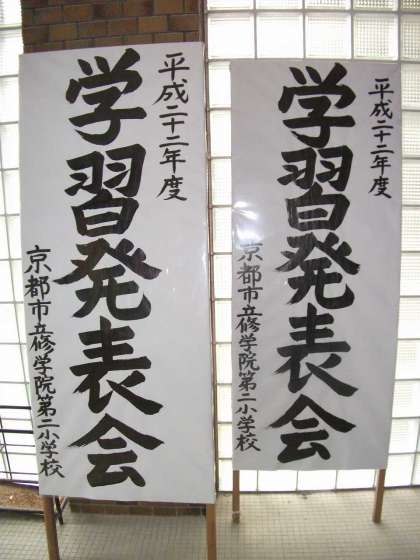 平成二十二年度
学習発表会
京都市立修学院第二小学校
平成二十二年度
学習発表会
京都市立修学院第二小学校